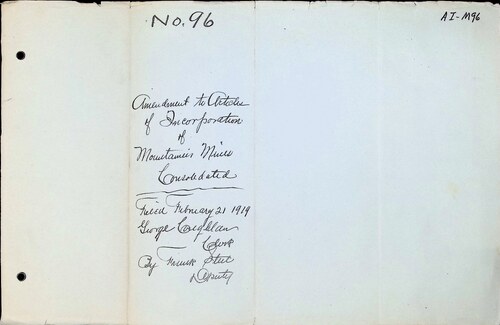 No. 96
AI-M96
Amendment to Articles
of Incorporation
of
Mountaineer Mines
Consolidated
Filed February 21 1919
George Coughlan
Clerk
By Frank
Deputy